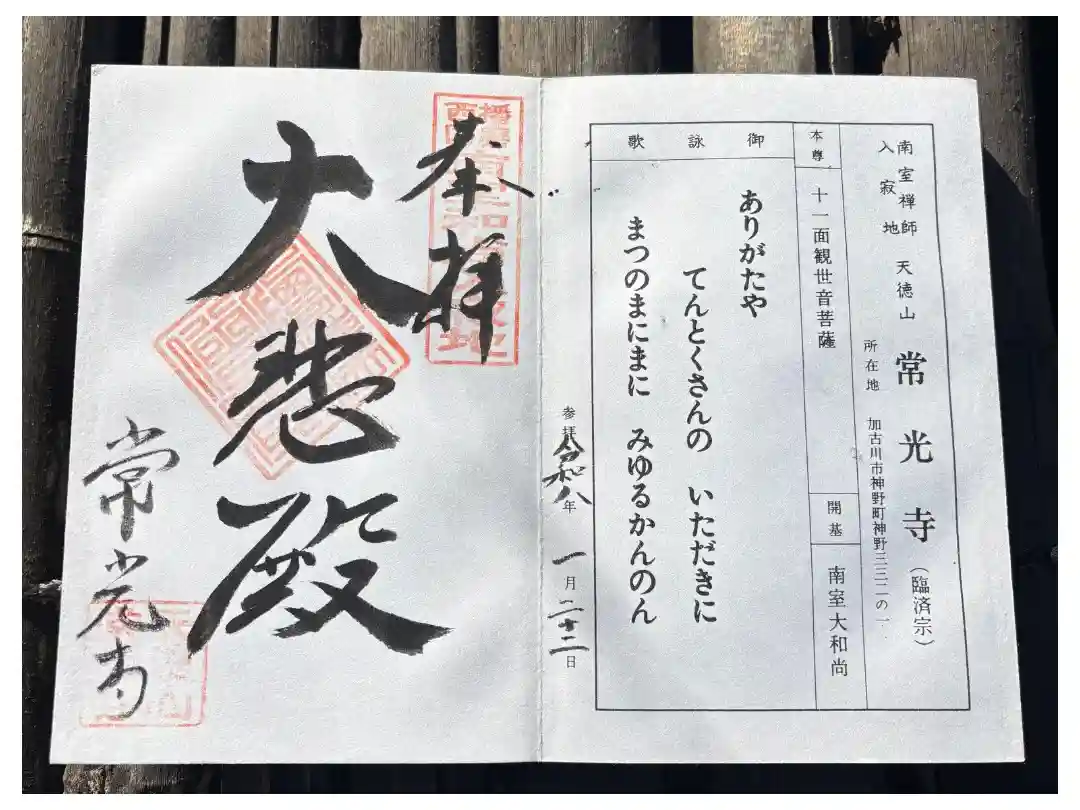 南室禅師
入寂地
天徳山
常光寺
(臨済宗)
所在地 加古川市神野町神野三三二の一
本尊
十一面観世音菩薩
開基
南室大和尚
御詠歌
ありがたや
てんとくさんの いただきに
まつのまにまに みゆるかんのん
参拝 令和八年 一月二十二日
奉拝
大悲殿
常光寺